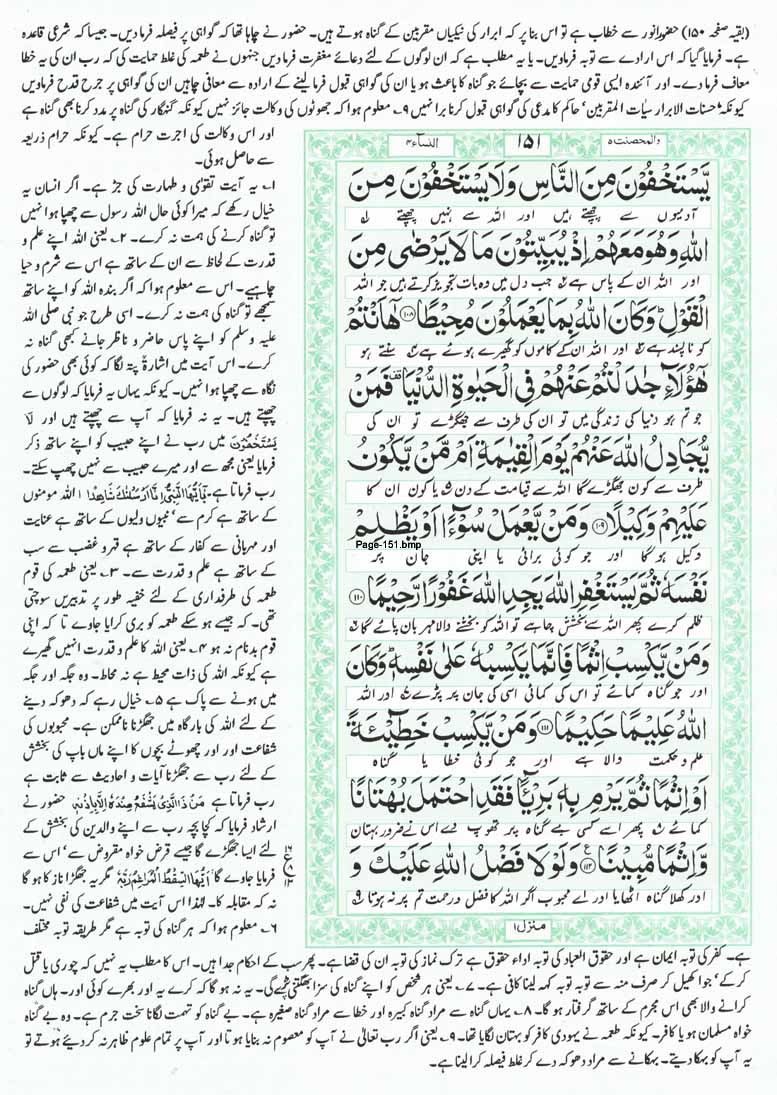 (بقیہ صفحہ ۱۵۰) حضور انور سے خطاب ہے تو اس بنا پر کہ ابرار کی نیکیاں مقربین کے گناہ ہوتے ہیں۔ حضور نے چاہا تھا کہ گواہی پر فیصلہ فرما دیں۔ جیسا کہ شرعی قاعدہ
ہے۔ فرمایا گیا کہ اس ارادے سے توبہ فرماویں۔ یا یہ مطلب ہے کہ ان لوگوں کے لئے دعائے مغفرت فرما دیں جنہوں نے طعمہ کی غلط حمایت کی کہ رب ان کی یہ خطا
معاف فرما دے۔ اور آئندہ ایسی قومی حمایت سے بچائے جو گناہ کا باعث ہو یا ان کی گواہی قبول فرمالینے کے ارادہ سے معافی چاہیں ان کی گواہی پر جرح قدح فرماویں
کیونکہ حسنات الابرار سیات المقربین، حاکم کا مدعی کی گواہی قبول کرنا برا نہیں ۹۔ معلوم ہوا کہ جھوٹوں کی وکالت جائز نہیں کیونکہ گنہگار کی گناہ پر مدد کرنا بھی گناہ ہے
اور اس وکالت کی اجرت حرام ہے۔ کیونکہ حرام ذریعہ
سے حاصل ہوئی۔
۱۔ یہ آیت تقویٰ و طہارت کی جڑ ہے۔ اگر انسان یہ
خیال رکھے کہ میرا کوئی حال اللہ رسول سے چھپا ہوا نہیں
تو گناہ کرنے کی ہمت نہ کرے۔ ۲۔ یعنی اللہ اپنے علم و
قدرت کے لحاظ سے ان کے ساتھ ہے اس سے شرم و حیا
چاہیے۔ اس سے معلوم ہوا کہ اگر بندہ اللہ کو اپنے ساتھ
سمجھے تو گناہ کی ہمت نہ کرے۔ اسی طرح جو نبی صلی اللہ
علیہ وسلم کو اپنے پاس حاضر و ناظر جانے کبھی گناہ نہ
کرے۔ اس آیت میں اشارۃً پتہ لگا کہ کوئی بھی حضور کی
نگاہ سے چھپا ہوا نہیں۔ کیونکہ یہاں یہ فرمایا کہ لوگوں سے
چھپتے ہیں۔ یہ نہ فرمایا کہ آپ سے چھپتے ہیں اور لَا
يَسْتَخْفُوْنَ میں رب نے اپنے حبیب کو اپنے ساتھ ذکر
فرمایا یعنی مجھ سے اور میرے حبیب سے نہیں چھپ سکتے۔
رب فرماتا ہے۔ يٰٓاَيُّهَا النَّبِيُّ اِنَّا اَرْسَلْنٰكَ شَاهِدًا ۱ اللہ مومنوں
کے ساتھ ہے کرم سے، نبیوں ولیوں کے ساتھ ہے عنایت
اور مہربانی سے کفار کے ساتھ ہے قہر و غضب سے سب
کے ساتھ ہے علم و قدرت سے۔ ۳۔ یعنی طعمہ کی قوم
طعمہ کی طرفداری کے لئے خفیہ طور پر تدبیریں سوچتی
تھی۔ کہ جیسے ہو سکے طعمہ کو بری کرایا جاوے تا کہ اپنی
قوم بدنام نہ ہو ۴۔ یعنی اللہ کا علم و قدرت انہیں گھیرے
ہے کیونکہ اللہ کی ذات محیط ہے نہ محاط۔ وہ جگہ اور جگہ
میں ہونے سے پاک ہے ۵۔ خیال رہے کہ دھوکہ دینے
کے لئے اللہ کی بارگاہ میں جھگڑنا ناممکن ہے۔ محبوبوں کی
شفاعت اور چھوٹے بچوں کا اپنے ماں باپ کی بخشش
کے لئے رب سے جھگڑنا آیات و احادیث سے ثابت ہے
رب فرماتا ہے مَنْ ذَا الَّذِيْ يَشْفَعُ عِنْدَهٗ اِلَّا بِاِذْنِهٖ حضور نے
ارشاد فرمایا کہ کچا بچہ رب سے اپنے والدین کی بخشش کے
لئے ایسا جھگڑے گا جیسے قرض خواہ مقروض سے، اس سے
فرمایا جاوے گا اَيُّهَا السِّقْطُ الْمُرَاغِمُ رَبَّهٗ مگر یہ جھگڑا ناز کا ہو گا
نہ کہ مقابلہ کا۔ لہٰذا اس آیت میں شفاعت کی نفی نہیں۔
۶۔ معلوم ہوا کہ ہر گناہ کی توبہ ہے مگر طریقہ توبہ مختلف
والمحصنت ۵
۱۵۱
النسآء ۴
يَّسْتَخْفُوْنَ مِنَ النَّاسِ وَلَا يَسْتَخْفُوْنَ مِنَ
آدمیوں سے چھپتے ہیں اور اللہ سے نہیں چھپتے
اللّٰهِ وَهُوَ مَعَهُمْ اِذْ يُبَيِّتُوْنَ مَا لَا يَرْضٰى مِنَ
اور اللہ ان کے پاس ہے جب دل میں وہ بات تجویز کرتے ہیں جو اللہ
الْقَوْلِ ؕ وَكَانَ اللّٰهُ بِمَا يَعْمَلُوْنَ مُحِيْطًا ۱۰۸ هٰۤاَنْتُمْ
کو ناپسند ہے اور اللہ ان کے کاموں کو گھیرے ہوئے ہے سنتے ہو
هٰٓؤُلَآءِ جٰدَلْتُمْ عَنْهُمْ فِي الْحَيٰوةِ الدُّنْيَا فَمَنْ
جو تم ہو دنیا کی زندگی میں تو ان کی طرف سے جھگڑے تو ان کی
يُّجَادِلُ اللّٰهَ عَنْهُمْ يَوْمَ الْقِيٰمَةِ اَمْ مَّنْ يَّكُوْنُ
طرف سے کون جھگڑے گا اللہ سے قیامت کے دن یا کون ان کا
عَلَيْهِمْ وَكِيْلًا ۱۰۹ وَمَنْ يَّعْمَلْ سُوْٓءًا اَوْ يَظْلِمْ
Page-151.bmp
وکیل ہو گا اور جو کوئی برائی یا اپنی جان پر
نَفْسَهٗ ثُمَّ يَسْتَغْفِرِ اللّٰهَ يَجِدِ اللّٰهَ غَفُوْرًا رَّحِيْمًا ۱۱۰
ظلم کرے پھر اللہ سے بخشش چاہے تو اللہ کو بخشنے والا مہربان پائے گا
وَمَنْ يَّكْسِبْ اِثْمًا فَاِنَّمَا يَكْسِبُهٗ عَلٰى نَفْسِهٖ ؕ وَكَانَ
اور جو گناہ کمائے تو اس کی کمائی اسی کی جان پر پڑے اور اللہ
اللّٰهُ عَلِيْمًا حَكِيْمًا ۱۱۱ وَمَنْ يَّكْسِبْ خَطِيْٓئَةً
علم و حکمت والا ہے اور جو کوئی خطا یا گناہ
اَوْ اِثْمًا ثُمَّ يَرْمِ بِهٖ بَرِيْٓئًا فَقَدِ احْتَمَلَ بُهْتَانًا
کمائے پھر اسے کسی بے گناہ پر تھوپ دے اس نے ضرور بہتان
وَّاِثْمًا مُّبِيْنًا ۱۱۲ وَلَوْلَا فَضْلُ اللّٰهِ عَلَيْكَ وَ
اور کھلا گناہ اٹھایا اور اے محبوب اگر اللہ کا فضل و رحمت تم پر نہ ہوتا
منزل ۱
ہے۔ کفر کی توبہ ایمان ہے اور حقوق العباد کی توبہ اداء حقوق ہے ترک نماز کی توبہ ان کی قضا ہے۔ پھر سب کے احکام جدا ہیں۔ اس کا مطلب یہ نہیں کہ چوری یا قتل
کر کے، جوا کھیل کر صرف منہ سے توبہ توبہ کہہ لینا کافی ہے۔ ۷۔ یعنی ہر شخص کو اپنے گناہ کی سزا بھگتنی پڑے گی۔ یہ نہ ہو گا کہ کرے یہ اور بھرے کوئی اور۔ ہاں گناہ
کرانے والا بھی اس مجرم کے ساتھ گرفتار ہو گا۔ ۸۔ یہاں گناہ سے مراد گناہ کبیرہ اور خطا سے مراد گناہ صغیرہ ہے۔ بے گناہ کو تہمت لگانا سخت جرم ہے۔ وہ بے گناہ
خواہ مسلمان ہو یا کافر۔ کیونکہ طعمہ نے یہودی کافر کو بہتان لگایا تھا۔ ۹۔ یعنی اگر رب تعالیٰ نے آپ کو معصوم نہ بنایا ہوتا اور آپ پر تمام علوم ظاہر نہ کر دیئے ہوتے تو
یہ آپ کو بہکا دیتے۔ بہکانے سے مراد دھوکہ دے کر غلط فیصلہ کرا لینا ہے۔